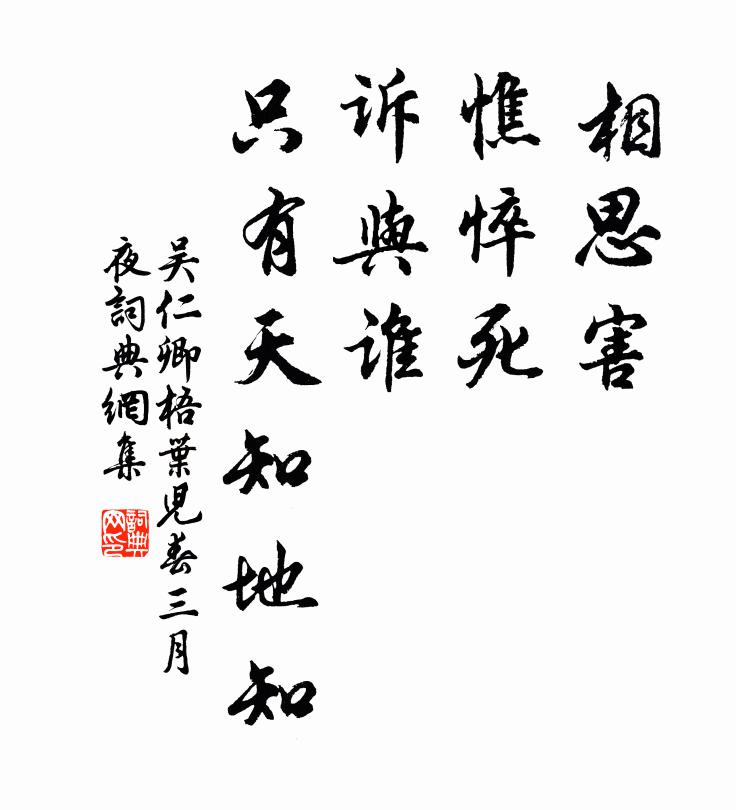 相思害
憔悴死
訴與誰
只有天知地知
吴仁卿梧葉児春三月
夜詞典網集
詞典网印